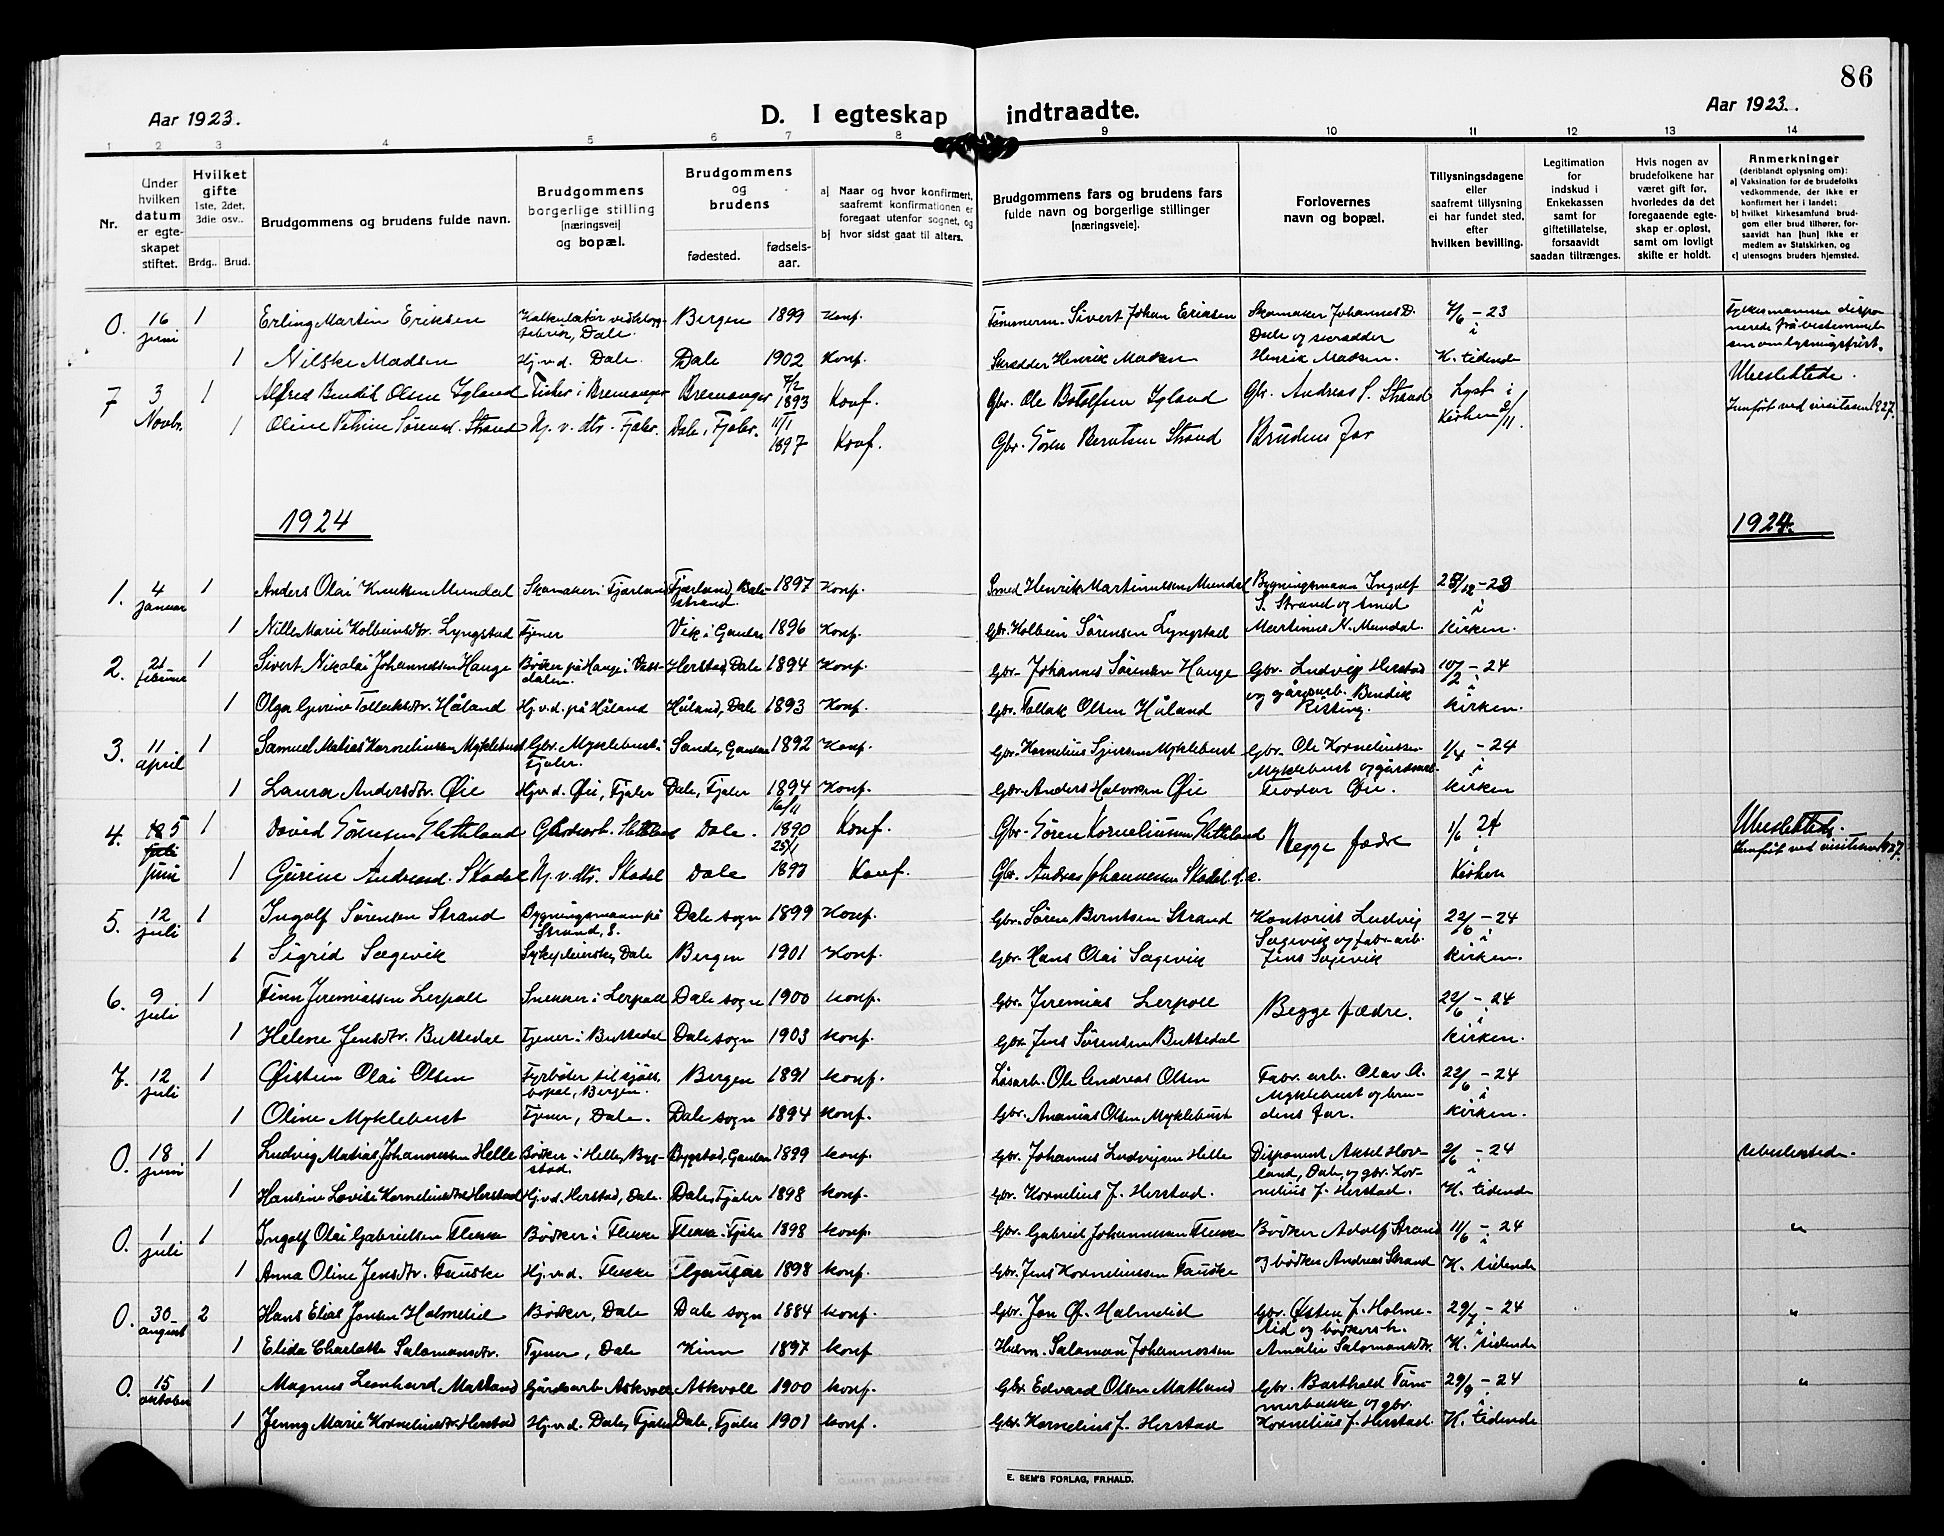 86
Aar 1923.
D. I egteskap indtraadte.
Aar 1923.
1 2 3 4 5 6 7 8 9 10 11 12 13 14
Nr.
Under hvilken datum er egteskapet stiftet.
Hvilket gifte 1ste, 2det, 3die osv..
Brdg.. Brud.
Brudgommens og brudens fulde navn.
Brudgommens borgerlige stilling (næringsvei) og bopæl.
Brudgommens og brudens
fødested. fødselsaar.
a) Naar og hvor konfirmert, saafremt konfirmationen er foregaat utenfor sognet, og
b) hvor sidst gaat til alters.
Brudgommens fars og brudens fars fulde navn og borgerlige stillinger (næringsveie).
Forlovernes navn og bopæl.
Tillysningsdagene eller saafremt tillysning ei har fundet sted, efter hvilken bevilling.
Legitimation for indskud i Enkekassen samt for giftetillatelse, forsaavidt saadan tiltrænges.
Hvis nogen av brudefolkene har været gift før, hvorledes da det foregaaende egteskap er opløst, samt om lovligt skifte er holdt.
Anmerkninger (deriblandt oplysning om):
a) Vaksination for de brudefolks vedkommende, der ikke er konfirmert her i landet;
b) hvilket kirkesamfund brudgom eller brud tilhører, forsaavidt han (hun) ikke er medlem av Statskirken, og
c) utensogns bruders hjemsted.
0. 16 juni 1 Erling Martin Eriksen Kalkulatør ved klogfabrik, Dale. Bergen 1899 Konf. Tømmerm. Sivert Johan Eriksen Skomaker Johannes D. Dale og skrædder 7/6 - 23 i
1 Nilske Madsen Hj.v.d. Dale. Dale 1902 Konf. Skrædder Henrik Madsen Henrik Madsen. K. tidende
7 3 Novbr. 1 Alfred Bendik Olsen Igland Fisker i Bremanger Bremanger 7/2 1893 Konf. Gbr. Ole Botolfsen Igland Gbr. Andreas S. Strand Lyst i Kirken 2/11 Ubeslektede. Innført ved visitasen 1927.
1 Oline Petrine Sørensd. Strand Hj. v. dts. Fjaler. Dale, Fjaler. 11/1 1897 Konf. Gbr. Søren Berntsen Strand Brudens far
1924
1924.
1. 4 januar 1 Anders Olai Knutsen Mundal Skomaker i Fjærland Fjærland, Balestrand. 1897 Konf. Smed Henrik Martinussen Mundal Bygningsmann Ingolf S. Strand og smed 28/12 - 23 i
1 Nille Marie Kolbeinsdtr. Lyngstad Tjener Vik i Gaular 1896 Konf. Gbr. Kolbein Sørensen Lyngstad Martinus N. Mundal. Kirken.
2. 21 februar 1 Sivert Nikolai Johannessen Hauge Bødker på Hauge i Vassdalen. Herstad, Dale 1894 Konf. Gbr. Johannes Sørensen Hauge Gbr. Ludvig Herstad og gårdsarb. Bendik 10/2 - 24 i
1 Olga Gurine Tollaksdtr. Håland Hj.v.d. på Håland Håland, Dale 1893 Konf. Gbr. Tollak Olsen Håland Risting. Kirken.
3. 11 april 1 Samuel Matias Korneliussen Myklebust Gbr. Myklebust i Fjaler. Sande, Gaular 1892 Konf. Gbr. Kornelius Sjursen Myklebust Gbr. Ole Korneliussen Myklebust og gårdsarb. 1/4 - 24 i
1 Laura Andersdtr. Øie Hj.v.d. Øie, Fjaler Dale, Fjaler 1894 Konf. Gbr. Anders Halvorsen Øie Teodor Øie. Kirken
4. 5 juni 1 David Sørensen Sletteland Dale. 16/11 1890 Konf. Gbr. Søren Korneliussen Sletteland Begge fædre 1/6 24 i Ubeslektede. Innført ved visitasen 1927.
1 Gurine Andreasd. Skadal Hj. v. dts. Skadal Dale 25/1 1890 Konf. Gbr. Andreas Johannessen Skadal Kirken
5. 12 juli 1 Ingolf Sørensen Strand Bygningsmann på Strand, S. Dale sogn 1899 Konf. Gbr. Søren Berntsen Strand Kontorist Ludvig Sægevik og fabr.arb. 22/6 - 24 i
1 Sigrid Sægevik Sykepleierske, Dale Bergen 1901 Konf. Gbr. Hans Olai Sægevik Jens Sægevik Kirken.
6. 9 juli 1 Finn Jeremiassen Lerpoll Snekker i Lerpoll Dale sogn 1900 Konf. Gbr. Jeremias Lerpoll Begge fædre. 22/6 - 24 i
1 Helene Jensdtr. Buttedal Tjener i Buttedal Dale sogn 1903 Konf. Gbr. Jens Sørensen Buttedal Kirken.
7. 12 juli 1 Øistein Olai Olsen Fyrbøter til sjøss, bopæl, Bergen. Bergen 1891 Konf. Løsarb. Ole Andreas Olsen Fabr. arb. Olav A. Myklebust og bru- 22/6 - 24 i
1 Oline Myklebust Tjener, Dale. Dale sogn 1894 Konf. Gbr. Ananias Olsen Myklebust dens far. Kirken.
0. 18 juni 1 Ludvig Matias Johannessen Helle Bødker i Helle, Bygstad. Bygstad, Gaular 1899 Konf. Gbr. Johannes Ludvigsen Helle Disponent Aksel Hovland, Dale, og gbr. Kor- 2/6 - 24 i Ubeslektede.
1 Hansine Lovise Korneliusdtr. Herstad Hj.v.d. Herstad, Dale. Dale, Fjaler 1898 Konf. Gbr. Kornelius J. Herstad. nelius J. Herstad. K. tidende
0. 1 juli 1 Ingolf Olai Gabrielsen Flekke Bødker i Flekke Flekke i Fjaler 1898 Konf. Gbr. Gabriel Johannessen Flekke Bødker Adolf Strand 11/6 - 24 i "
1 Anna Oline Jensdtr. Fauske Hj.v.d. Flekke 1898 Konf. Gbr. Jens Korneliussen Fauske og bødker Andreas Strand K. tidende
0. 30 august 2 Hans Elias Jonsen Holmelid Bødker, Dale Dale sogn 1884 Konf. Gbr. Jon O. Holmelid Gbr. Østen J. Holmelid og bødkersk. 29/7 - 24 i "
1 Elida Charlotte Salamonsdtr. Tjener, Dale Kinn 1897 Konf Husm. Salamon Johannessen Amalie Salomonsdtr. K. tidende
0. 15 oktober 1 Magnus Leonhard Matland Gårdsarb. Askvoll Askvoll 1900 Konf. Gbr. Edvard Olsen Matland Gbr. Barthold Tømmerbakke og gbr. 29/9 - 24 i "
1 Jenny Marie Korneliusdtr. Herstad Hj.v.d. Dale, Fjaler Dale, Fjaler 1901 Konf. Gbr. Kornelius J. Herstad Kornelius J. Herstad. K. tidende
E. SEM'S FORLAG, FR.HALD.